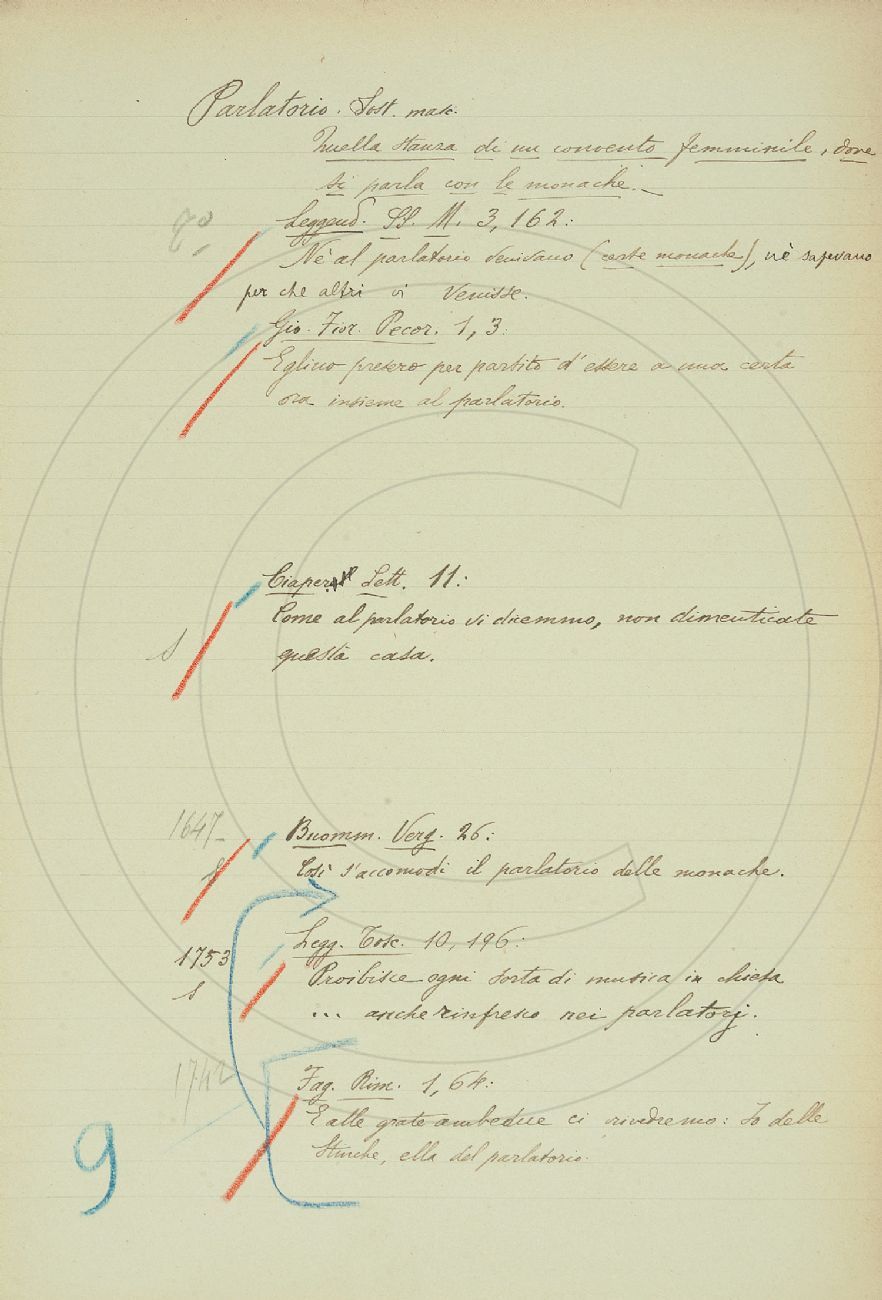 Parlatorio. Sost. masc.
Quella stanza di un convento femminile, dove
si parla con le monache.
Leggend. SS. M. 3, 162:
Nè al parlatorio venivano (certe monache), nè sapevano
per che altri vi venisse.
Gio. Fior. Pecor. 1, 3:
Eglino presero per partito d'essere a una certa
ora insieme al parlatorio.
Ciaper. Lett. 11:
S
Come al parlatorio vi dicemmo, non dimenticate
questa casa.
1647
Buomm. Verg. 26:
S
Così s'accomodi il parlatorio delle monache.
Legg. Tosc. 10, 196:
1753
Proibisce ogni sorta di musica in chiesa
S
... anche rinfresco nei parlatorj.
1742
Fag. Rim. 1, 64:
E alle grate ambedue ci rivedremo: Io delle
Stinche, ella del parlatorio.
9